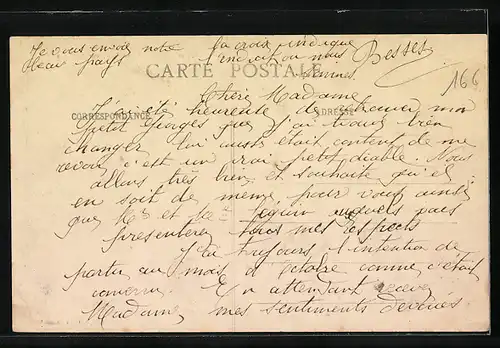 Je vous envoie notre la croix indique Besses
beau pays l'endroit ou nous 166
CARTE POSTALE sommes
Chère Madame
CORRESPONDANCE ADRESSE
J'ai été heureuse de retrouver mon
petit Georges que j'ai trouvé bien
changer lui aussi était content de me
revoir c'est un vrai petit diable. Nous
allons très bien et souhaite qu'il
en soit de meme pour vous ainsi
que Mr et
presenterez tous mes respects
J'ai toujours l'intention de
partir au mois d'octobre comme c'était
convenu. En attendant recevez
Madame mes sentiments dévoués